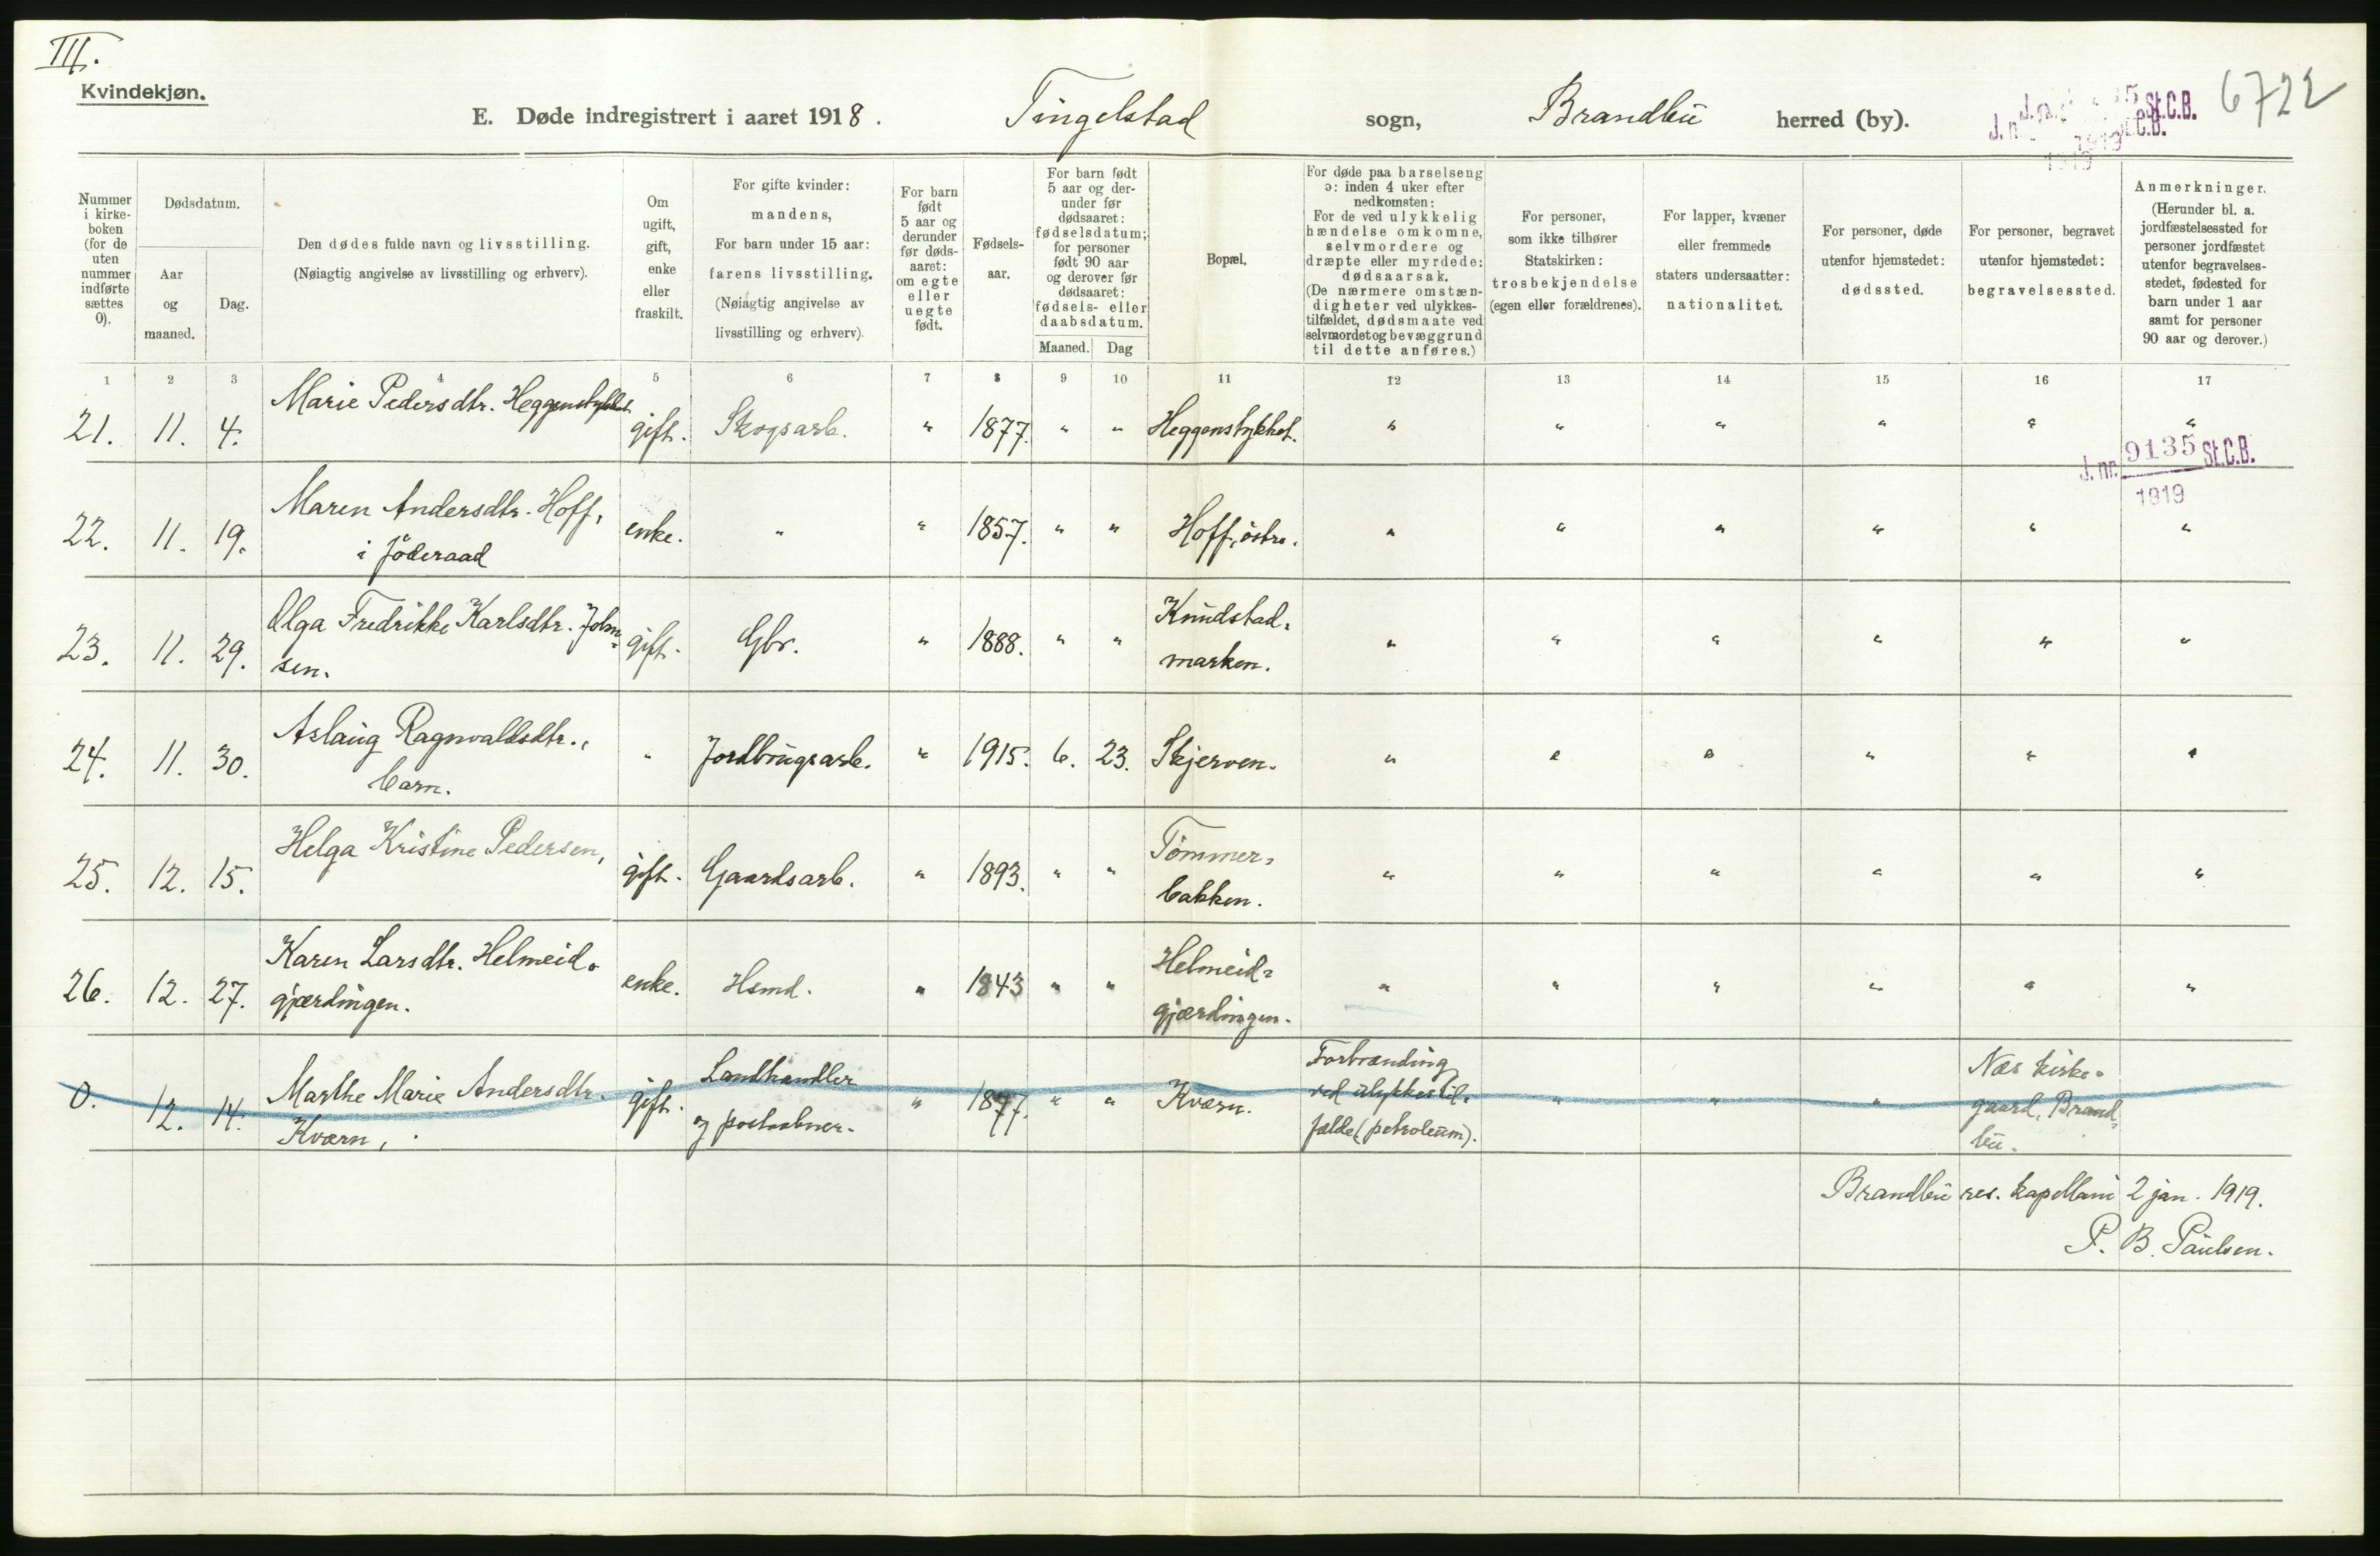 III.
Kvindekjøn.
E. Døde indregistrert i aaret 1918. Tingelstad sogn, Brandbu herred (by).
6722
Nummer i kirkeboken (for de uten nummer indførte sættes 0).
Dødsdatum.
Aar og maaned.
Dag.
Den dødes fulde navn og livsstilling.
(Nøiagtig angivelse av livsstilling og erhverv).
Om ugift, gift, enke eller fraskilt.
For gifte kvinder: mandens,
For barn under 15 aar: farens livsstilling.
(Nøiagtig angivelse av livsstilling og erhverv).
For barn født 5 aar og derunder før dødsaaret: om egte eller uegte født.
Fødselsaar.
For barn født 5 aar og derunder før dødsaaret: fødselsdatum; for personer født 90 aar og derover før dødsaaret: fødsels- eller daabsdatum.
Maaned. Dag
Bopæl.
For døde paa barselseng ɔ: inden 4 uker efter nedkomsten:
For de ved ulykkelig hændelse omkomne, selvmordere og dræpte eller myrdede: dødsaarsak.
(De nærmere omstændigheter ved ulykkestilfældet, dødsmaate ved selvmordet og bevæggrund til dette anføres.)
For personer, som ikke tilhører Statskirken: trosbekjendelse (egen eller forældrenes).
For lapper, kvæner eller fremmede staters undersaatter: nationalitet.
For personer, døde utenfor hjemstedet: dødssted.
For personer, begravet utenfor hjemstedet: begravelsessted.
Anmerkninger.
(Herunder bl. a. jordfæstelsessted for personer jordfæstet utenfor begravelsesstedet, fødested for barn under 1 aar samt for personer 90 aar og derover.)
1 2 3 4 5 6 7 8 9 10 11 12 13 14 15 16 17
21. 11. 4. Marie Pedersdtr. Heggenstykket gift. Skogsarb. " 1877. " " Heggenstykket. " " " " " "
J. nr. 9135 St.C.B.
1919
22. 11. 19. Maren Andersdtr. Hoff, i föderaad enke. " " 1857. " " Hoff, östre. " " " " " "
23. 11. 29. Olga Fredrikke Karlsdtr. Johnsen. gift. Gbr. " 1888. " " Knudstadmarken. " " " " " "
24. 11. 30. Aslaug Ragnvaldsdtr., barn. " Jordbrugsarb. " 1915. 6. 23. Skjerven. " " " " " "
25. 12. 15. Helga Kristine Pedersen, gift. Gaardsarb. " 1893. " " Tömmerbakken. " " " " " "
26. 12. 27. Karen Larsdtr. Helmeidgjærdingen. enke. Hsmd. " 1843 " " Helmeidgjærdingen. " " " " " "
0. 12. 14. Marthe Marie Andersdtr. Kværn, gift. Landhandler og postaabner. " 1877. " " Kværn. Forbrænding ved ulykkestilfælde (petroleum). " " " Næs kirkegaard, Brandbu.
Brandbu res. kapellani 2 jan. 1919.
P. B. Paulsen.